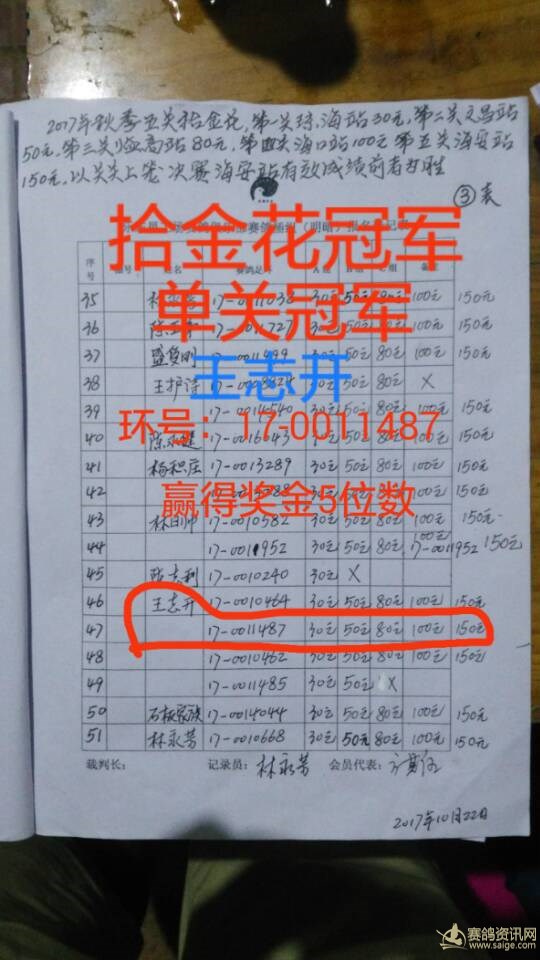 2017年秋季五关拾金花,第一关琼海站30元,第二关文昌站
50元.第三关临高站80元,第四关海口站100元 第五关海安站
150元,以关关上笼 决赛海安站有效成绩前者为胜
③表
拾金花冠军
单关冠军
王志开
环号：17-0011487
赢得奖金5位数
序号
35 17-0011038 30元 50元 80元 100元 150元
36 17-0011727 30元 50元 80元 100元 150元
37 盛复刚 17-0011499 30元 50元 80元 100元 150元
38 王护诗 30元 50元 80元 X
39 17-0014540 30元 50元 80元 100元 150元
40 17-0016643 30元 50元 80元 100元 150元
41 杨积庄 17-0013289 30元 50元 80元 100元 150元
42 30元 50元 80元 100元 150元
43 17-0010582 30元 50元 80元 100元 150元
44 17-0011952 30元 50元 80元 100元 17-0011952 150元
45 17-0010240 30元 X
46 王志开 17-0010464 30元 50元 80元 100元 150元
47 17-0011487 30元 50元 80元 100元 150元
48 17-0010462 30元 50元 80元 100元 150元
49 17-0011485 30元 50元 X
50 石板家族 17-0014044 30元 50元 80元 100元 150元
51 林永芳 17-0010668 30元 50元 80元 100元 150元
裁判长: 记录员: 林永芳 会员代表:
2017年10月22日
赛鸽资讯网
www.saige.com